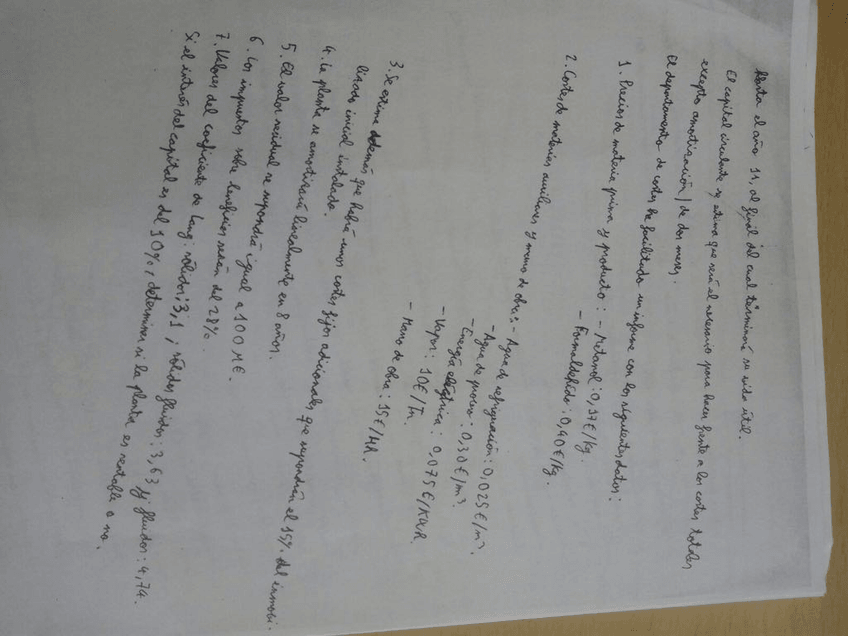 Hasta el año 11, al final del cual terminará su vida útil.
El capital circulante se estima que será el necesario para hacer frente a los costes totales
excepto amortización, de dos meses.
El departamento de costes ha facilitado un informe con los siguientes datos:
1. Precios de materia prima y producto: - Metanol: 0,17€/kg.
- Formaldehído: 0,40€/kg.
2. Costes de materias auxiliares y mano de obra: - Agua de refrigeración: 0,025€/m³.
- Agua de proceso: 0,30€/m³.
- Energía eléctrica: 0,075€/kWh.
- Vapor: 10€/Tn.
- Mano de obra: 15€/HR.
3. Se estima además que habrá unos costes fijos adicionales que supondrán el 15% del inmovi-
lizado inicial instalado.
4. La planta se amortizará linealmente en 8 años.
5. El valor residual se supondrá igual a 100M€.
6. Los impuestos sobre beneficios serán del 28%.
7. Valores del coeficiente de Lang: sólidos: 3,1; sólidos fluidos: 3,63 y fluidos: 4,74.
Si el interés del capital es del 10%, determinar si la planta es rentable o no.